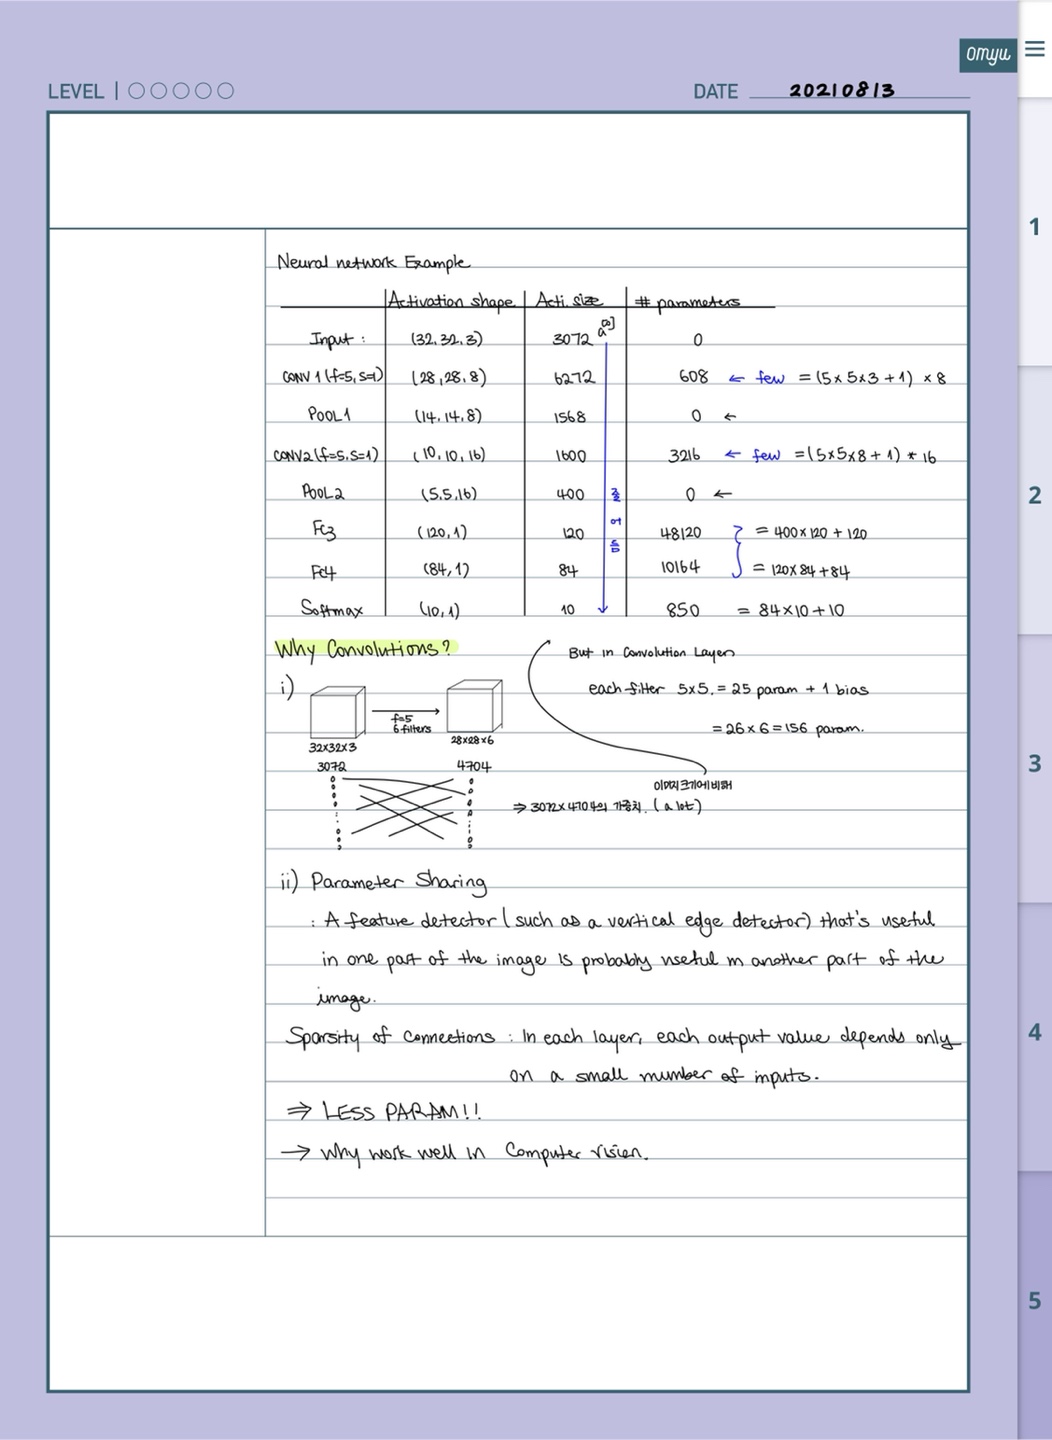 omyu
LEVEL | ○○○○○
DATE 20210813
1
2
3
4
5
Neural network Example
Activation shape Acti. size # parameters
Input : (32,32,3) 3072 a[0] 0
CONV1 (f=5, s=1) (28,28,8) 6272 608 ← few = (5×5×3+1) ×8
POOL1 (14,14,8) 1568 0 ←
CONV2 (f=5, S=1) (10,10,16) 1600 3216 ← few = (5×5×8+1) * 16
POOL2 (5,5,16) 400 0 ←
FC3 (120,1) 120 48120 = 400×120 + 120
FC4 (84,1) 84 10164 = 120×84+84
Softmax (10,1) 10 850 = 84×10+10
Why Convolutions?
But in Convolution Layer
i)
each filter 5×5. = 25 param + 1 bias
f=5
6 filters
= 26×6=156 param.
32×32×3 28×28×6
3072 4704
이미지크기에비해
⇒ 3072×4704의 가중치. (a lot)
ii) Parameter Sharing
: A feature detector (such as a vertical edge detector) that's useful
in one part of the image is probably useful in another part of the
image.
Sparsity of Connections : In each layer, each output value depends only
on a small number of inputs.
⇒ LESS PARAM!!
→ Why work well in Computer vision.